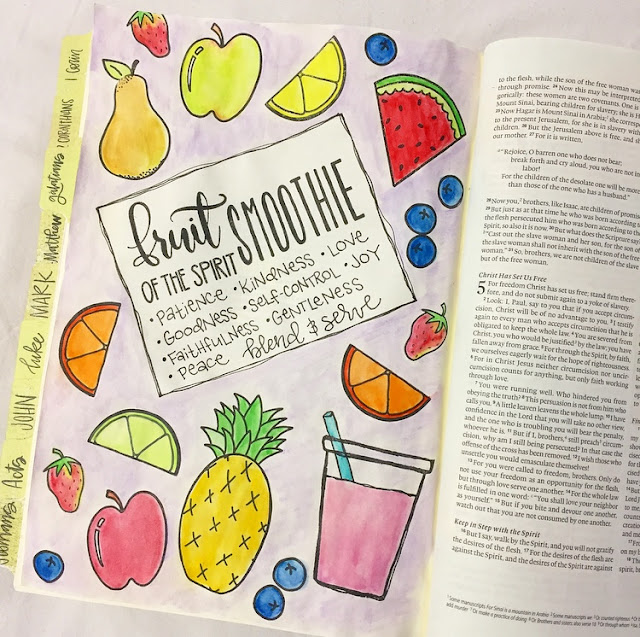 Romans
Acts
JOHN
luke
MARK
Matthew
galatians
fruit SMOOTHIE
OF THE SPIRIT
• Patience • Kindness • Love
• Goodness • Self-Control • Joy
• Faithfulness • Gentleness
• Peace blend & serve
to the flesh, while the son of the free woman
through promise. 24 Now this may be
gorically: these women are two covenants. One is
Mount Sinai, bearing children for slavery; she is
Now Hagar is Mount Sinai in Arabia; she
to the present Jerusalem, for she is in slavery
children. 26 But the Jerusalem above is free, and
our mother. 27 For it is written,
"Rejoice, O barren one who does not bear;
break forth and cry aloud, you who are not in
labor!
For the children of the desolate one will be
than those of the one who has a husband."
28 Now you, brothers, like Isaac, are children of
29 But just as at that time he who was born according
the flesh persecuted him who was born according to
Spirit, so also it is now. 30 But what does the Scripture
"Cast out the slave woman and her son, for the son
the slave woman shall not inherit with the son of the
woman." 31 So, brothers, we are not children of the
but of the free woman.
Christ Has Set Us Free
5 For freedom Christ has set us free; stand firm
fore, and do not submit again to a yoke of slavery.
2 Look: I, Paul, say to you that if you accept
cision, Christ will be of no advantage to you. 3 I testify
again to every man who accepts circumcision that he is
obligated to keep the whole law. 4 You are severed from
Christ, you who would be justified by the law; you have
fallen away from grace. 5 For through the Spirit, by faith,
we ourselves eagerly wait for the hope of righteousness.
6 For in Christ Jesus neither circumcision nor
cision counts for anything, but only faith working
through love.
7 You were running well. Who hindered you from
obeying the truth? 8 This persuasion is not from him who
calls you. 9 A little leaven leavens the whole lump. 10 I have
confidence in the Lord that you will take no other view,
and the one who is troubling you will bear the penalty,
whoever he is. 11 But if I, brothers, still preach
cision, why am I still being persecuted? In that case the
offense of the cross has been removed. 12 I wish those who
unsettle you would emasculate themselves!
13 For you were called to freedom, brothers. Only do
not use your freedom as an opportunity for the flesh,
but through love serve one another. 14 For the whole law
is fulfilled in one word: "You shall love your neighbor
as yourself." 15 But if you bite and devour one another,
watch out that you are not consumed by one another.
Keep in Step with the Spirit
16 But I say, walk by the Spirit, and you will not gratify
the desires of the flesh. 17 For the desires of the flesh are
against the Spirit, and the desires of the Spirit are against